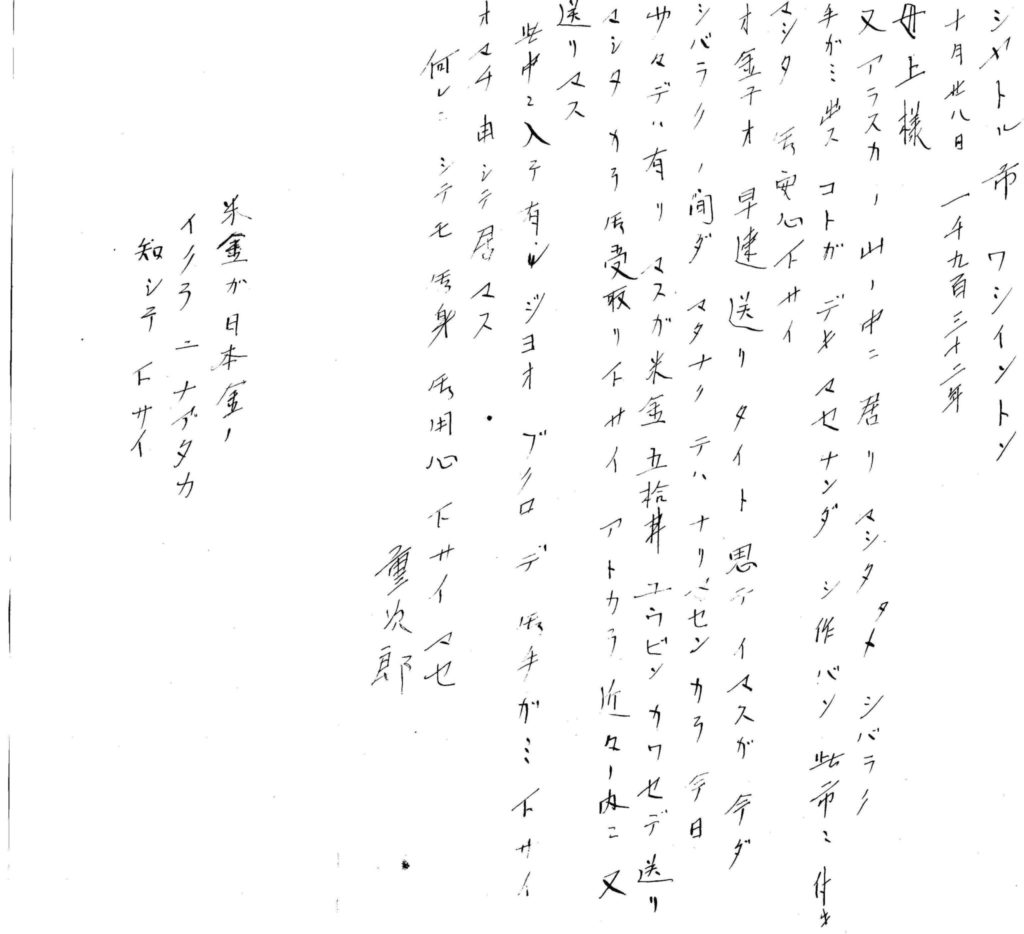 シヤトル市 ワシイントン
十月廿八日 一千九百三十二年
母上様
又アラスカノ山ノ中ニ居リマシタタメ シバラク
手ガミ出ス コトガ デキマセナンダ シ作バン此市ニ付キ
マシタ 御安心下サイ
オ金子オ 早速送リタイト思テイマスガ 今ダ
シバラクノ間ダ マタナクテハナリマセンカラ 今日
サタデハ有リマスガ米金五拾弗 ユウビンカワセデ送リ
マシタカラ御受取リ下サイ アトカラ近々ノ内ニ又
送リマス
此中ニ入テ有ル ジヨオブクロデ 御手ガミ下サイ
オマチ申シテ居マス
何レニシテモ 御身御用心下サイマセ
重次郎
米金ガ日本金ノ
イクラニナデタカ
知シテ下サイ